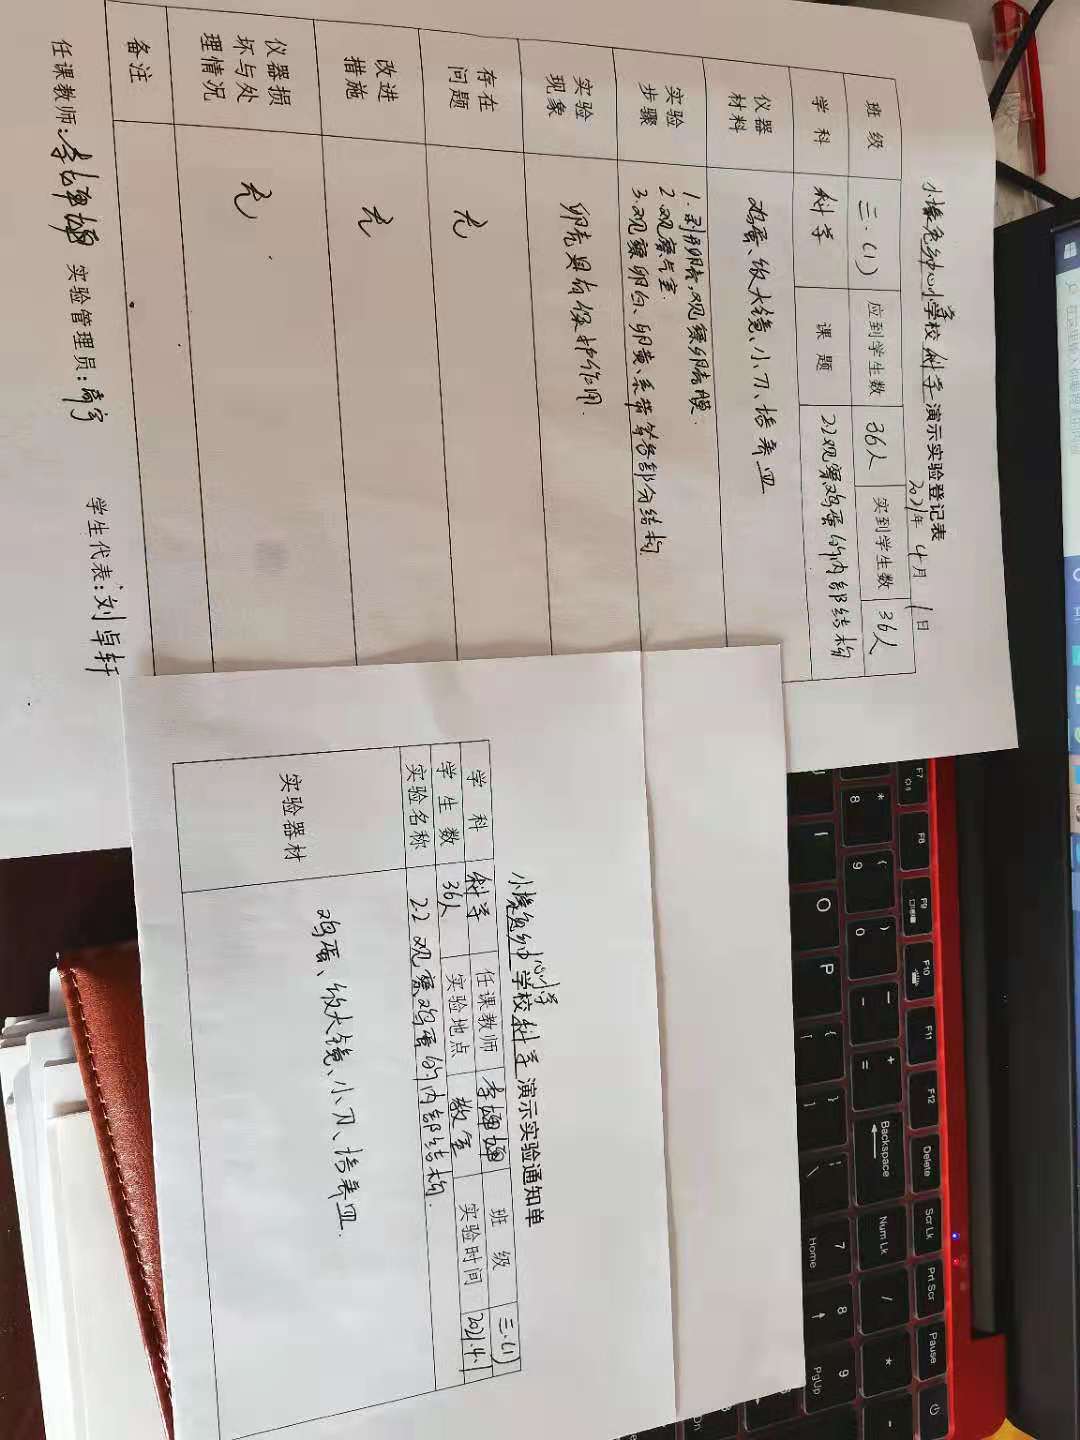 学校科学演示实验登记表
2021年4月1日
班级 三.(1) 应到学生数 36人 实到学生数 36人
学科 科学 课题 2.2观察鸡蛋的内部结构
仪器材料 鸡蛋、放大镜、小刀、培养皿
实验步骤
1.剥开卵壳,观察卵壳膜.
2.观察气室.
3.观察卵白、卵黄、系带等各部分结构
实验现象 卵壳具有保护作用.
存在问题 无
改进措施 无
仪器损坏与处理情况 无
备注
任课教师: 实验管理员: 学生代表:刘卓轩
学校科学演示实验通知单
学科 科学 任课教师 班级 三.(1)
学生数 36人 实验地点 教室 实验时间 2021.4.1
实验名称 2.2 观察鸡蛋的内部结构.
实验器材 鸡蛋、放大镜、小刀、培养皿.
F7
F8
F9
F10
F11
F12
Delete
Scr Lk
Prt Scr
Pause
Backspace
Num Lk
Home
PgUp